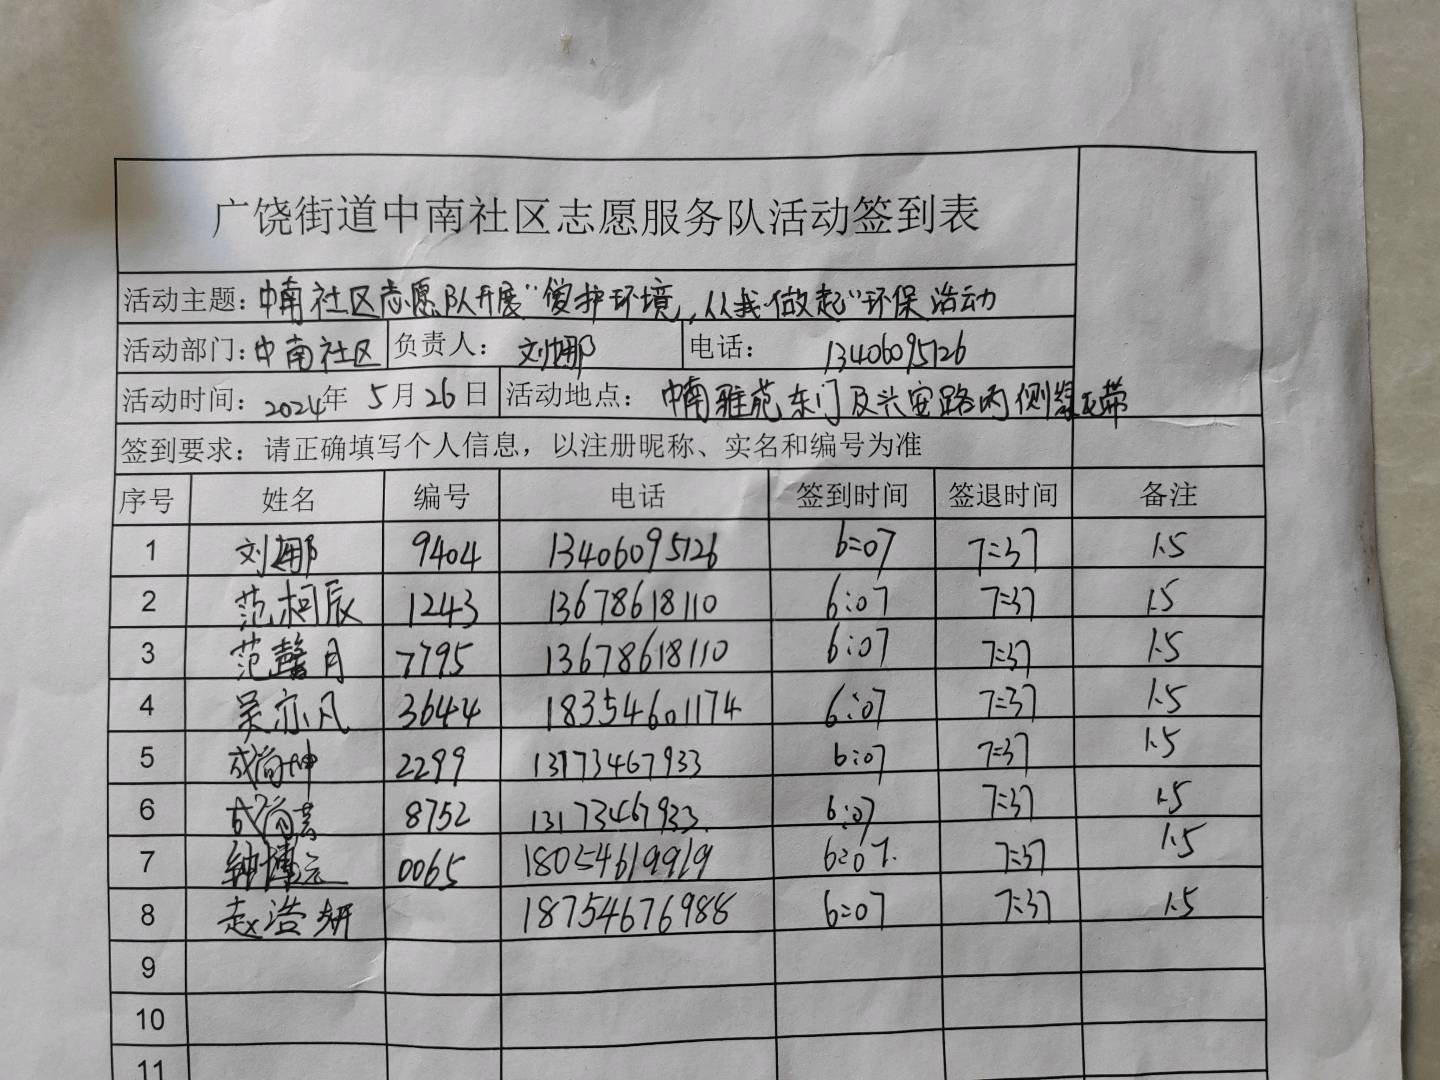 广饶街道中南社区志愿服务队活动签到表
活动主题：中南社区志愿队开展“爱护环境，从我做起”环保活动
活动部门：中南社区 负责人：刘娜 电话：13406095126
活动时间：2024年5月26日 活动地点：中南雅苑东门及兴安路两侧绿化带
签到要求：请正确填写个人信息，以注册昵称、实名和编号为准
序号 姓名 编号 电话 签到时间 签退时间 备注
1 刘娜 9404 13406095126 6:07 7:37 1.5
2 范柯辰 1243 13678618110 6:07 7:37 1.5
3 范馨月 7795 13678618110 6:07 7:37 1.5
4 吴亦凡 3644 18354601174 6:07 7:37 1.5
5 成尚坤 2299 13173467933 6:07 7:37 1.5
6 成尚 8752 13173467933 6:07 7:37 1.5
7 钟博云 0065 18054619919 6:07 7:37 1.5
8 赵浩妍 18754676988 6:07 7:37 1.5
9
10
11